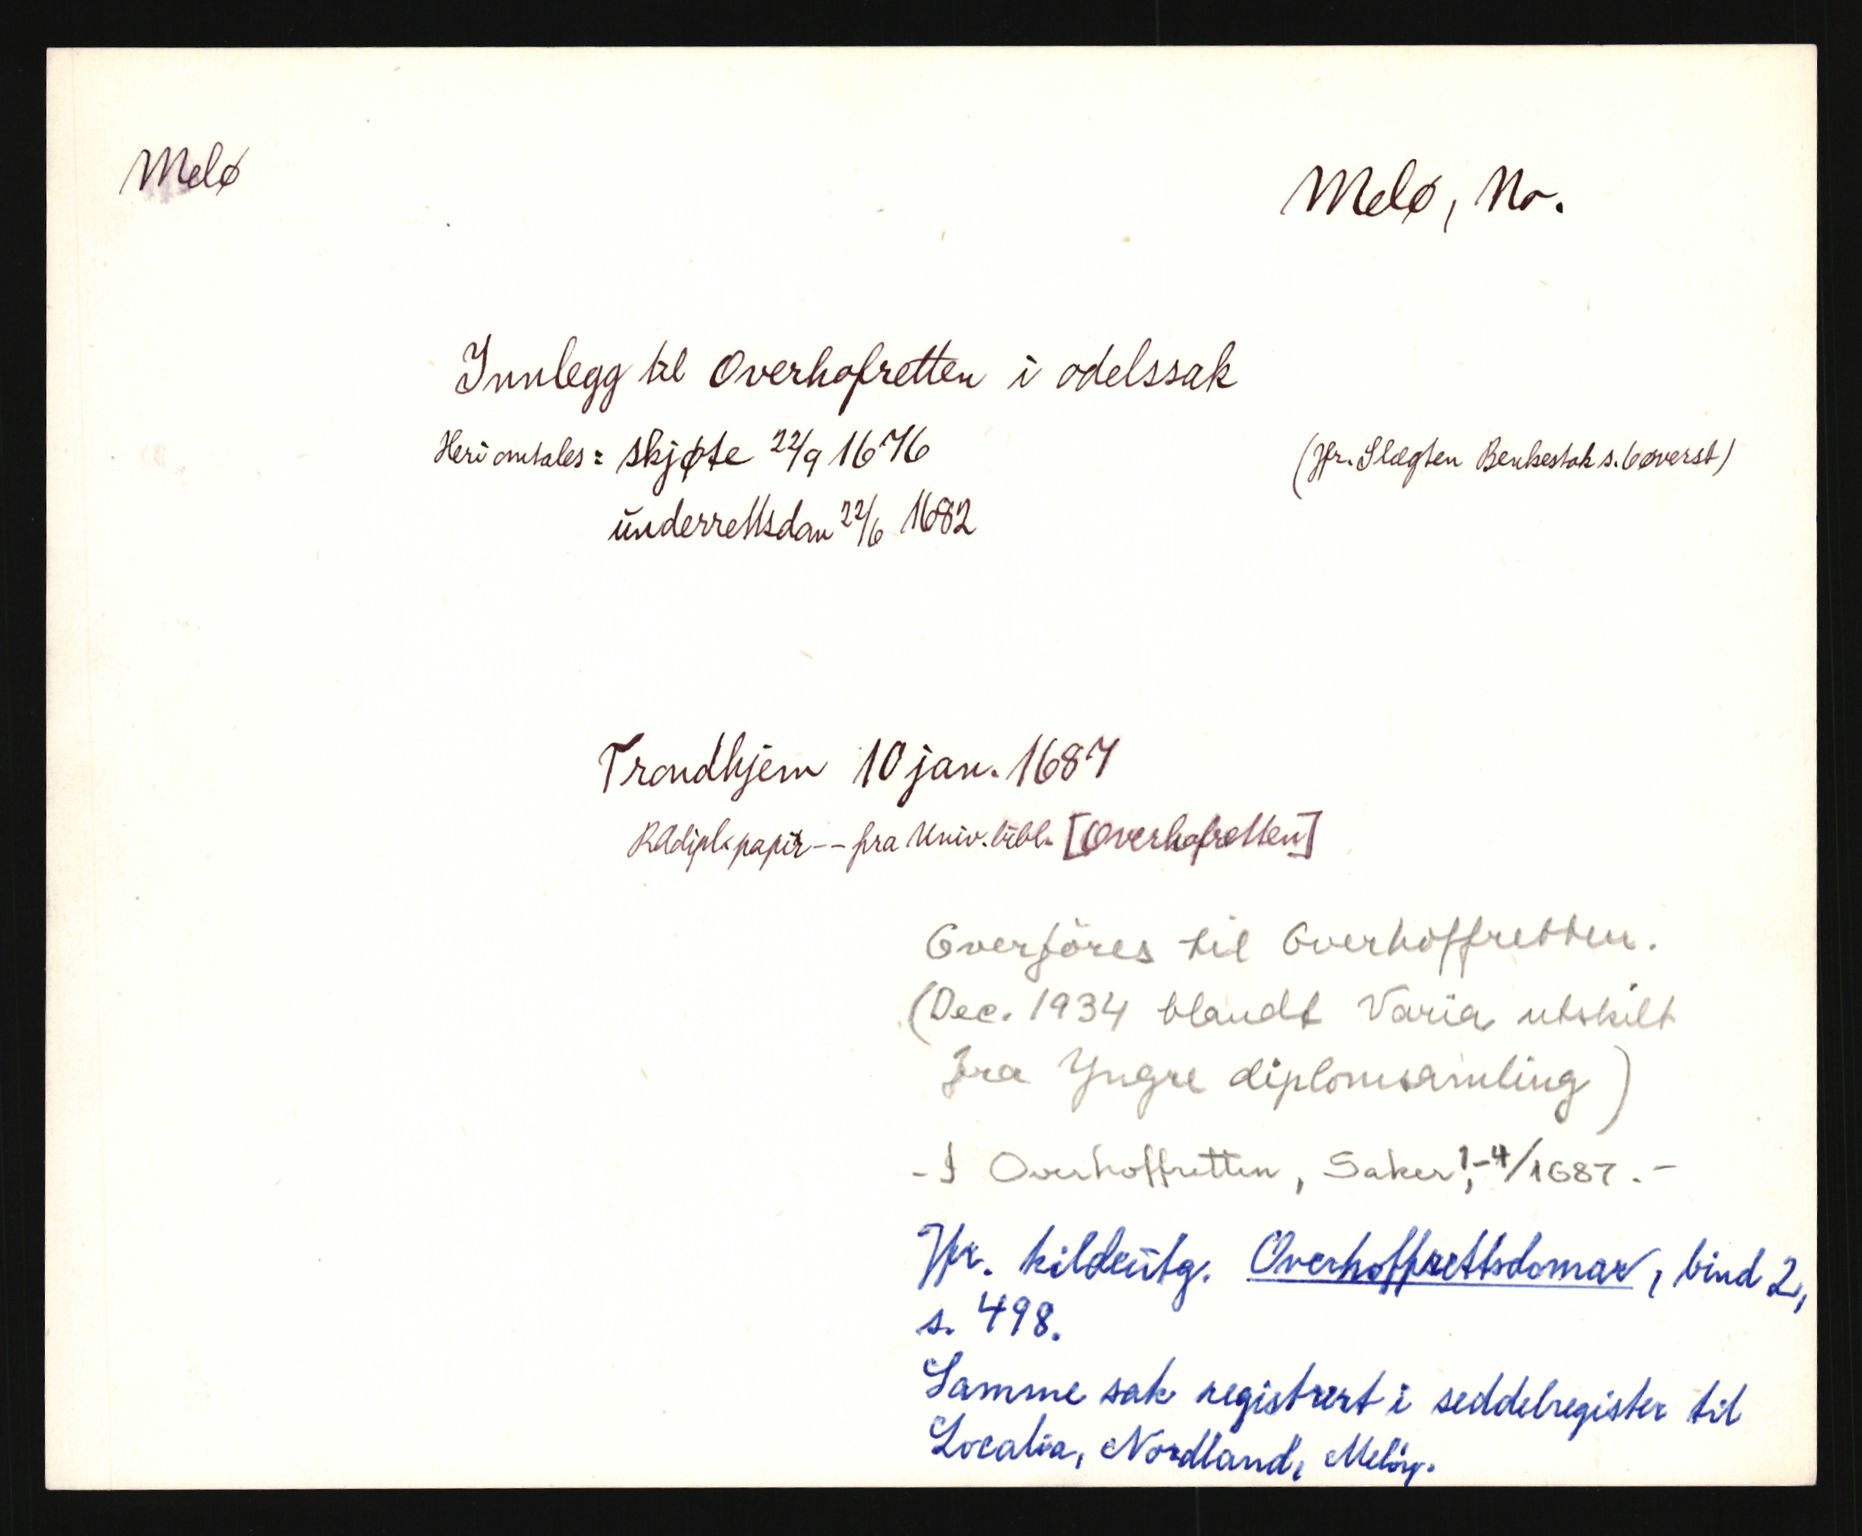 Melø
Melø, No.
Innlegg til Overhofretten i odelssak
Heri omtales: skjøte 22/9 1676
(Jfr. Slægten Benkestok s. 6 øverst)
underrettsdom 22/6 1682
Trondhjem 10 jan. 1687
RAdipl. papir -- fra Univ. bibl. [Overhofretten]
Overföres til Overhoffretten.
(Dec. 1934 blandt Varia utskilt
fra Yngre diplomsamling)
- I Overhoffretten, Saker, 1-4/1687. -
Jfr. kildeutg. Overhoffrettsdomar, bind 2,
s. 498.
Samme sak registrert i seddelregister til
Localia, Nordland, Melöy.